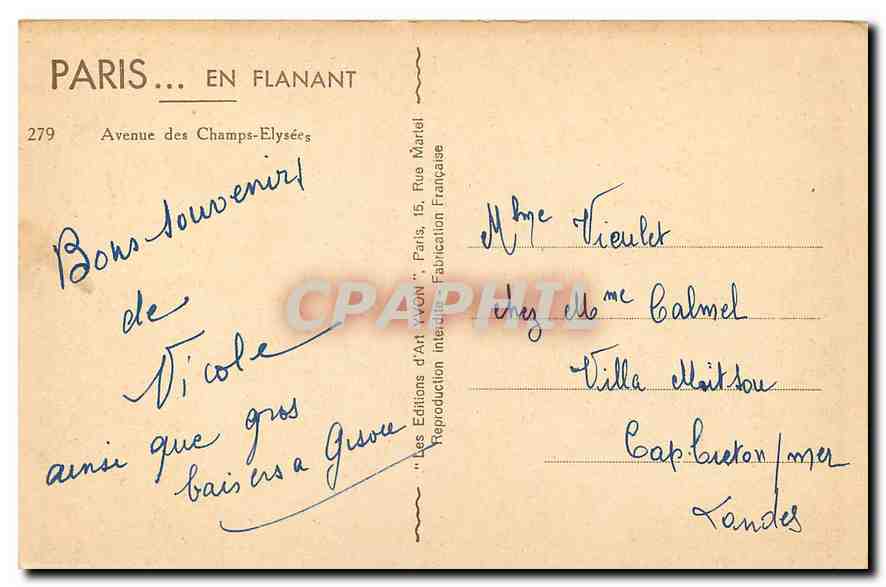 PARIS... EN FLANANT
279 Avenue des Champs-Elysées
Bons souvenirs
de
Nicole
ainsi que gros
baisers a
"Les Editions d'Art YVON", Paris, 15, Rue Martel
Reproduction interdite - Fabrication Française
CPAPHIL
Mme Vieulet
chez Mme Calmel
Villa
Cap Creton/mer
Landes